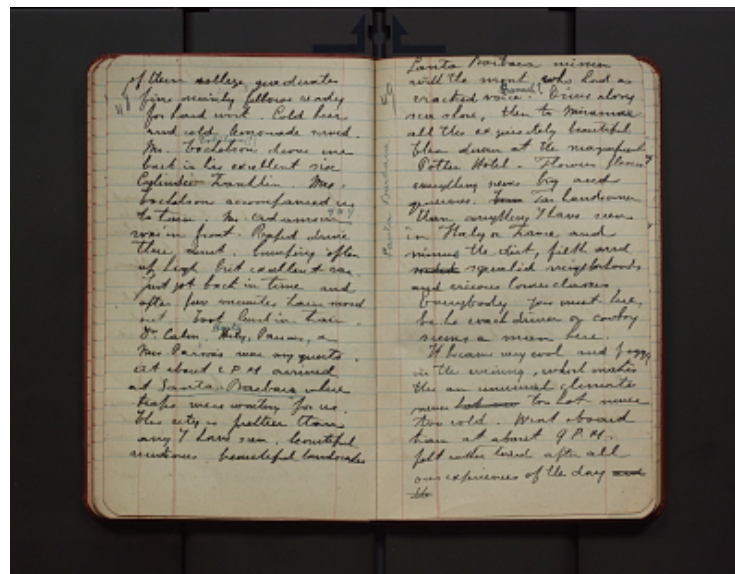 48
of them college graduates
fine manly fellows ready
for hard work. Cold beer
and cold lemonade served.
Mr. drove me
back in his excellent six
Cylinder Franklin. Mrs.
accompanied us
to town. Mr
was in front. Rapid drive
thro dust. bumping often
up high but excellent car.
just got back in time and
after few minutes train moved
out. Took lunch in train.
Dr. Calm.
Mrs Parsons was my guests.
At about 2 P.M arrived
at Santa Barbara where
traps were waiting for us.
this city is prettier than
any I have seen. beautiful
beautiful landscapes
49
Santa Barbara
Santa Barbara mission
with the monk, who had a
cracked voice. Drive along
sea shore, then to Miramar
all this exquisitely beautiful
then dinner at the magnificent
Potter Hotel. Flowers flowers
everything news big and
generous. Far handsomer
than anything I have seen
in Italy or France and
minus the dirt, filth and
squalid neighborhoods
and vicious lower classes
Everybody you meet here,
be he coach driver or cowboy
seems a man here.
It became very cool and foggy
in the evening, which makes
this an unusual climate
never too hot never
too cold. Went aboard
train at about 9 P.M.
felt rather tired after all
our experiences of the day and